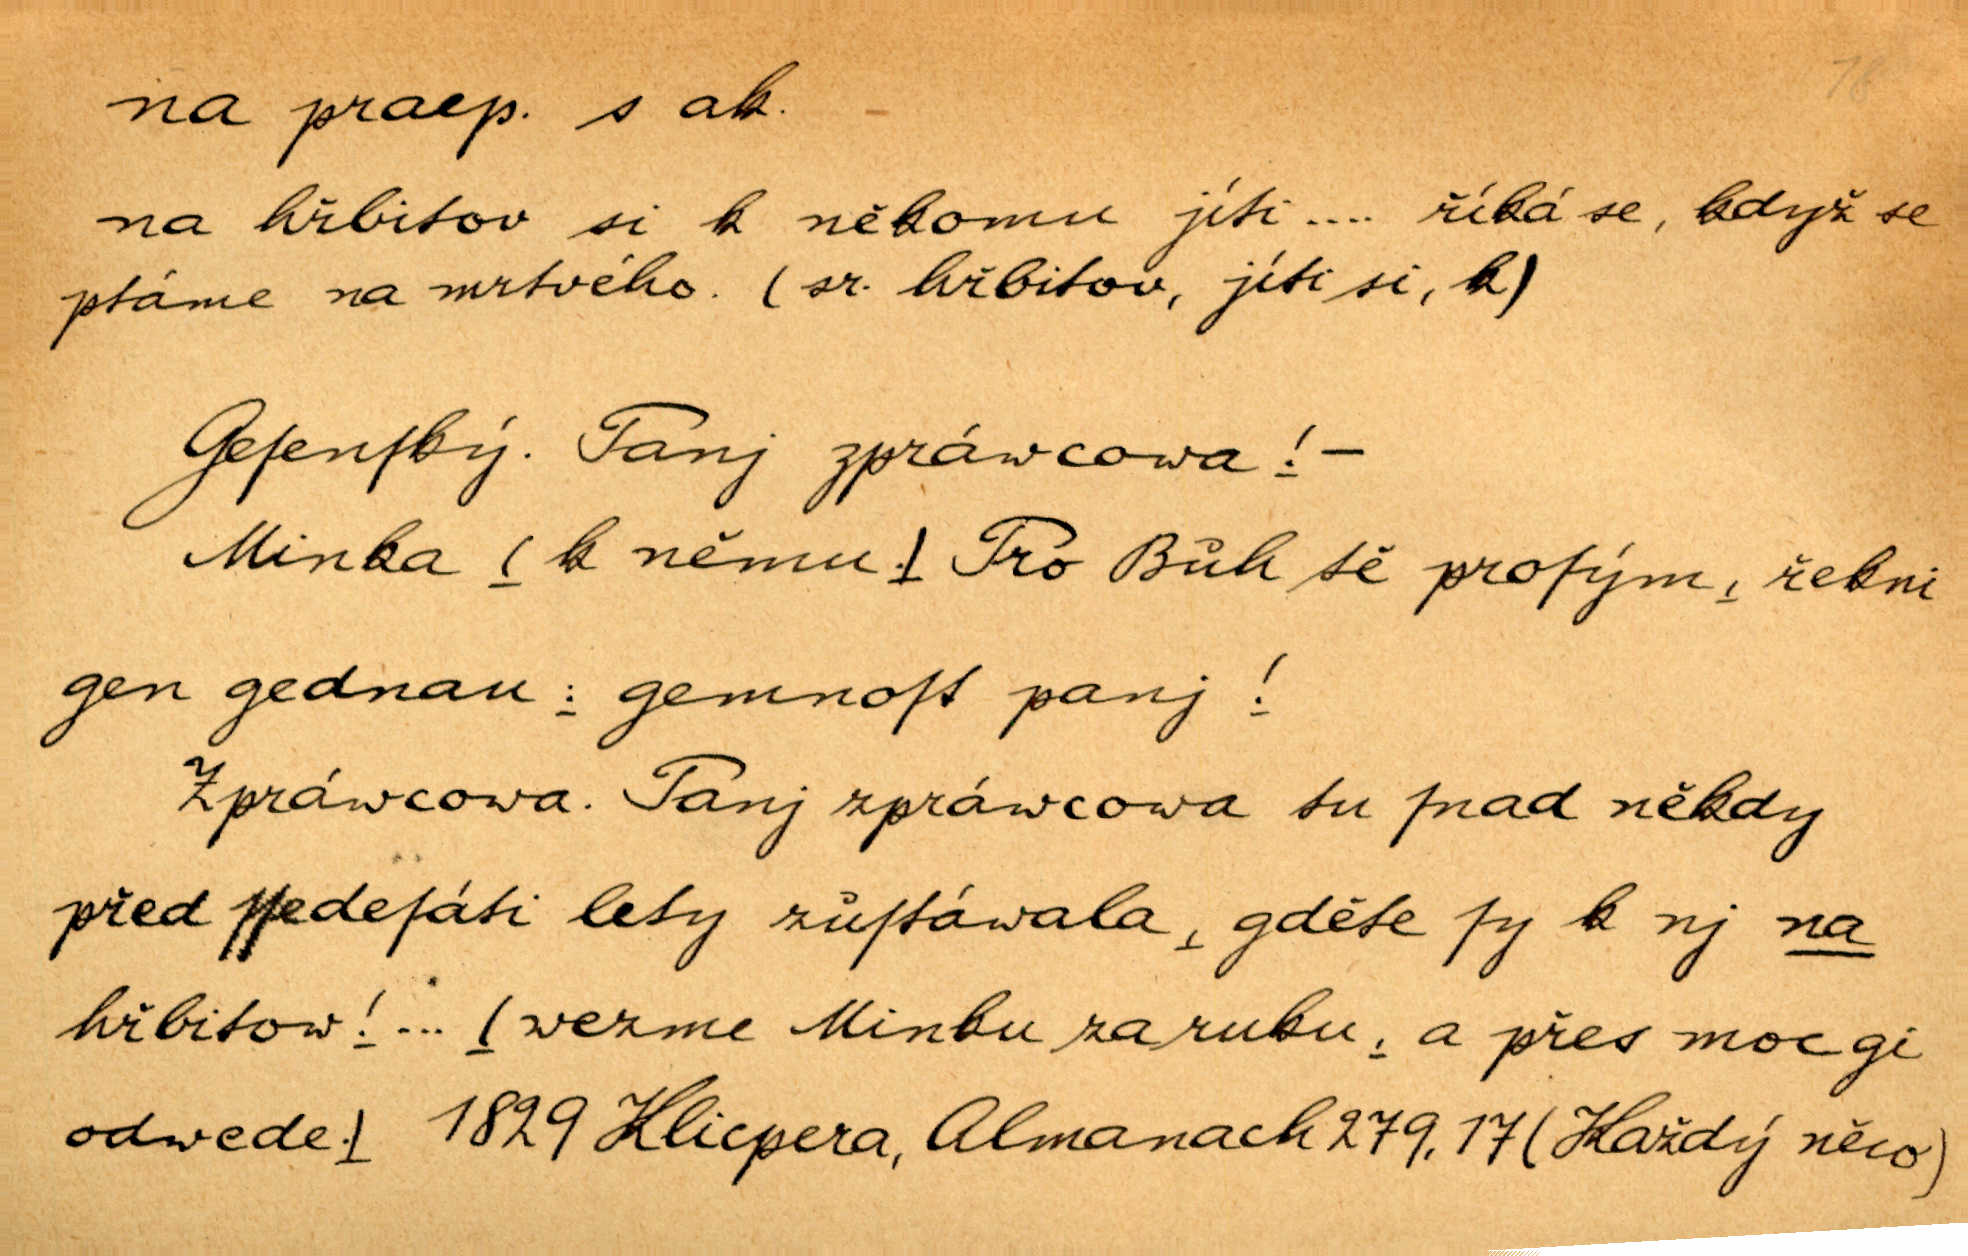 18
na praep. s ak.
na hřbitov si k někomu jíti .... říká se, když se
ptáme na mrtvého. (sr. hřbitov, jíti si, k)
Geſenſký. Panj zpráwcowa! –
Minka (k němu.) Pro Bůh tě proſým, řekni
gen gednau: gemnoſt panj!
Zpráwcowa. Panj zpráwcowa tu ſnad někdy
před ſſedeſáti lety zůſtáwala, gděte ſy k nj na
hřbitow! ... (wezme Minku za ruku, a přes moc gi
odwede.) 1829 Klicpera, Almanach 279, 17 (Každý něco)